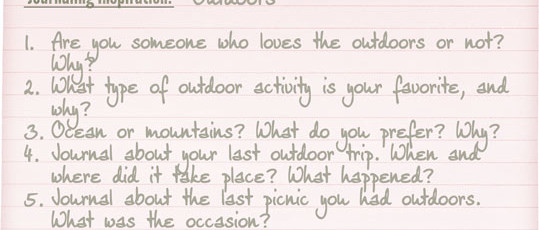 Journaling Inspiration: Outdoors
1. Are you someone who loves the outdoors or not?
Why?
2. What type of outdoor activity is your favorite, and
why?
3. Ocean or mountains? What do you prefer? Why?
4. Journal about your last outdoor trip. When and
where did it take place? What happened?
5. Journal about the last picnic you had outdoors.
What was the occasion?